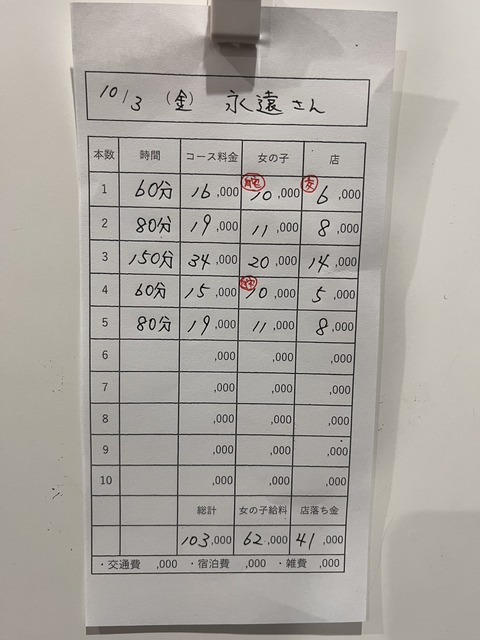 10/3 (金) 永遠さん
本数 時間 コース料金 女の子 店
1 60分 16,000 10,000 6,000
2 80分 19,000 11,000 8,000
3 150分 34,000 20,000 14,000
4 60分 15,000 10,000 5,000
5 80分 19,000 11,000 8,000
6 ,000 ,000 ,000
7 ,000 ,000 ,000
8 ,000 ,000 ,000
9 ,000 ,000 ,000
10 ,000 ,000 ,000
総計 女の子給料 店落ち金
103,000 62,000 41,000
・交通費 ,000 ・宿泊費 ,000 ・雑費 ,000